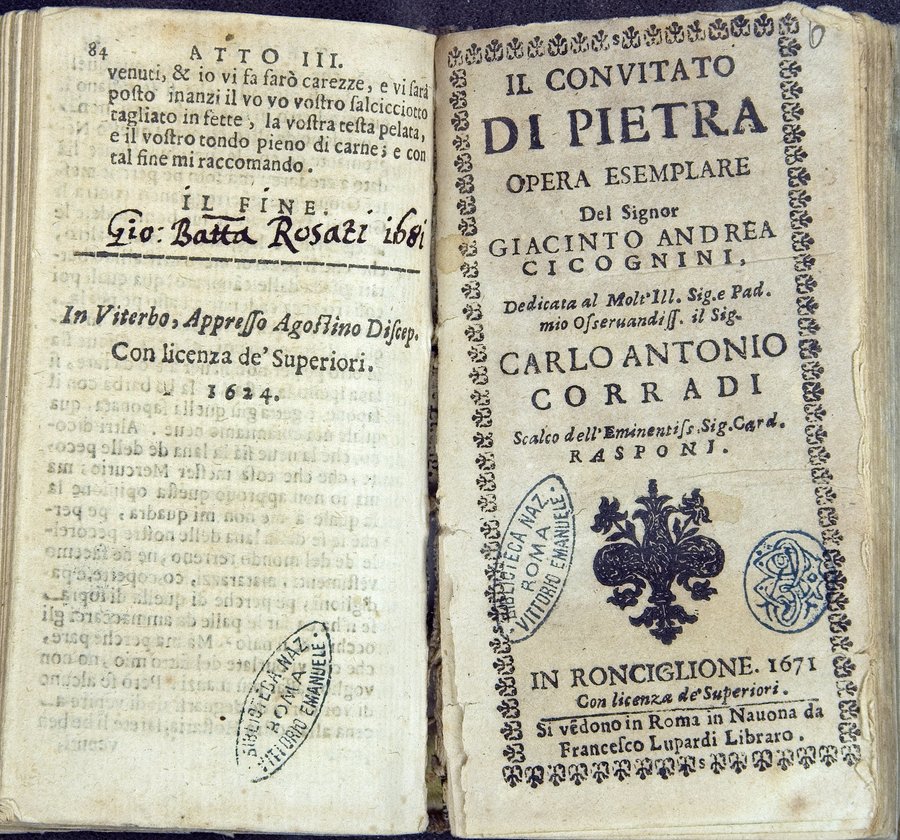 84
ATTO III.
venuti, & io vi fa farò carezze, e vi sarà
posto inanzi il vo vo vostro salcicciotto
tagliato in fette, la vostra testa pelata,
e il vostro tondo pieno di carne; e con
tal fine mi raccomando.
IL FINE.
Gio: Batta Rosati 1681
In Viterbo, Appresso Agostino Discep.
Con licenza de' Superiori.
1624.
BIBLIOTECA NAZ.
ROMA
VITTORIO EMANUELE
6
IL CONVITATO
DI PIETRA
OPERA ESEMPLARE
Del Signor
GIACINTO ANDREA
CICOGNINI,
Dedicata al Molt'Ill. Sig. e Pad.
mio Osservandiss. il Sig.
CARLO ANTONIO
CORRADI
Scalco dell'Eminentiss. Sig. Card.
RASPONI.
BIBLIOTECA NAZ.
ROMA
VITTORIO EMANUELE
IN RONCIGLIONE. 1671
Con licenza de' Superiori.
Si vedono in Roma in Nauona da
Francesco Lupardi Libraro.